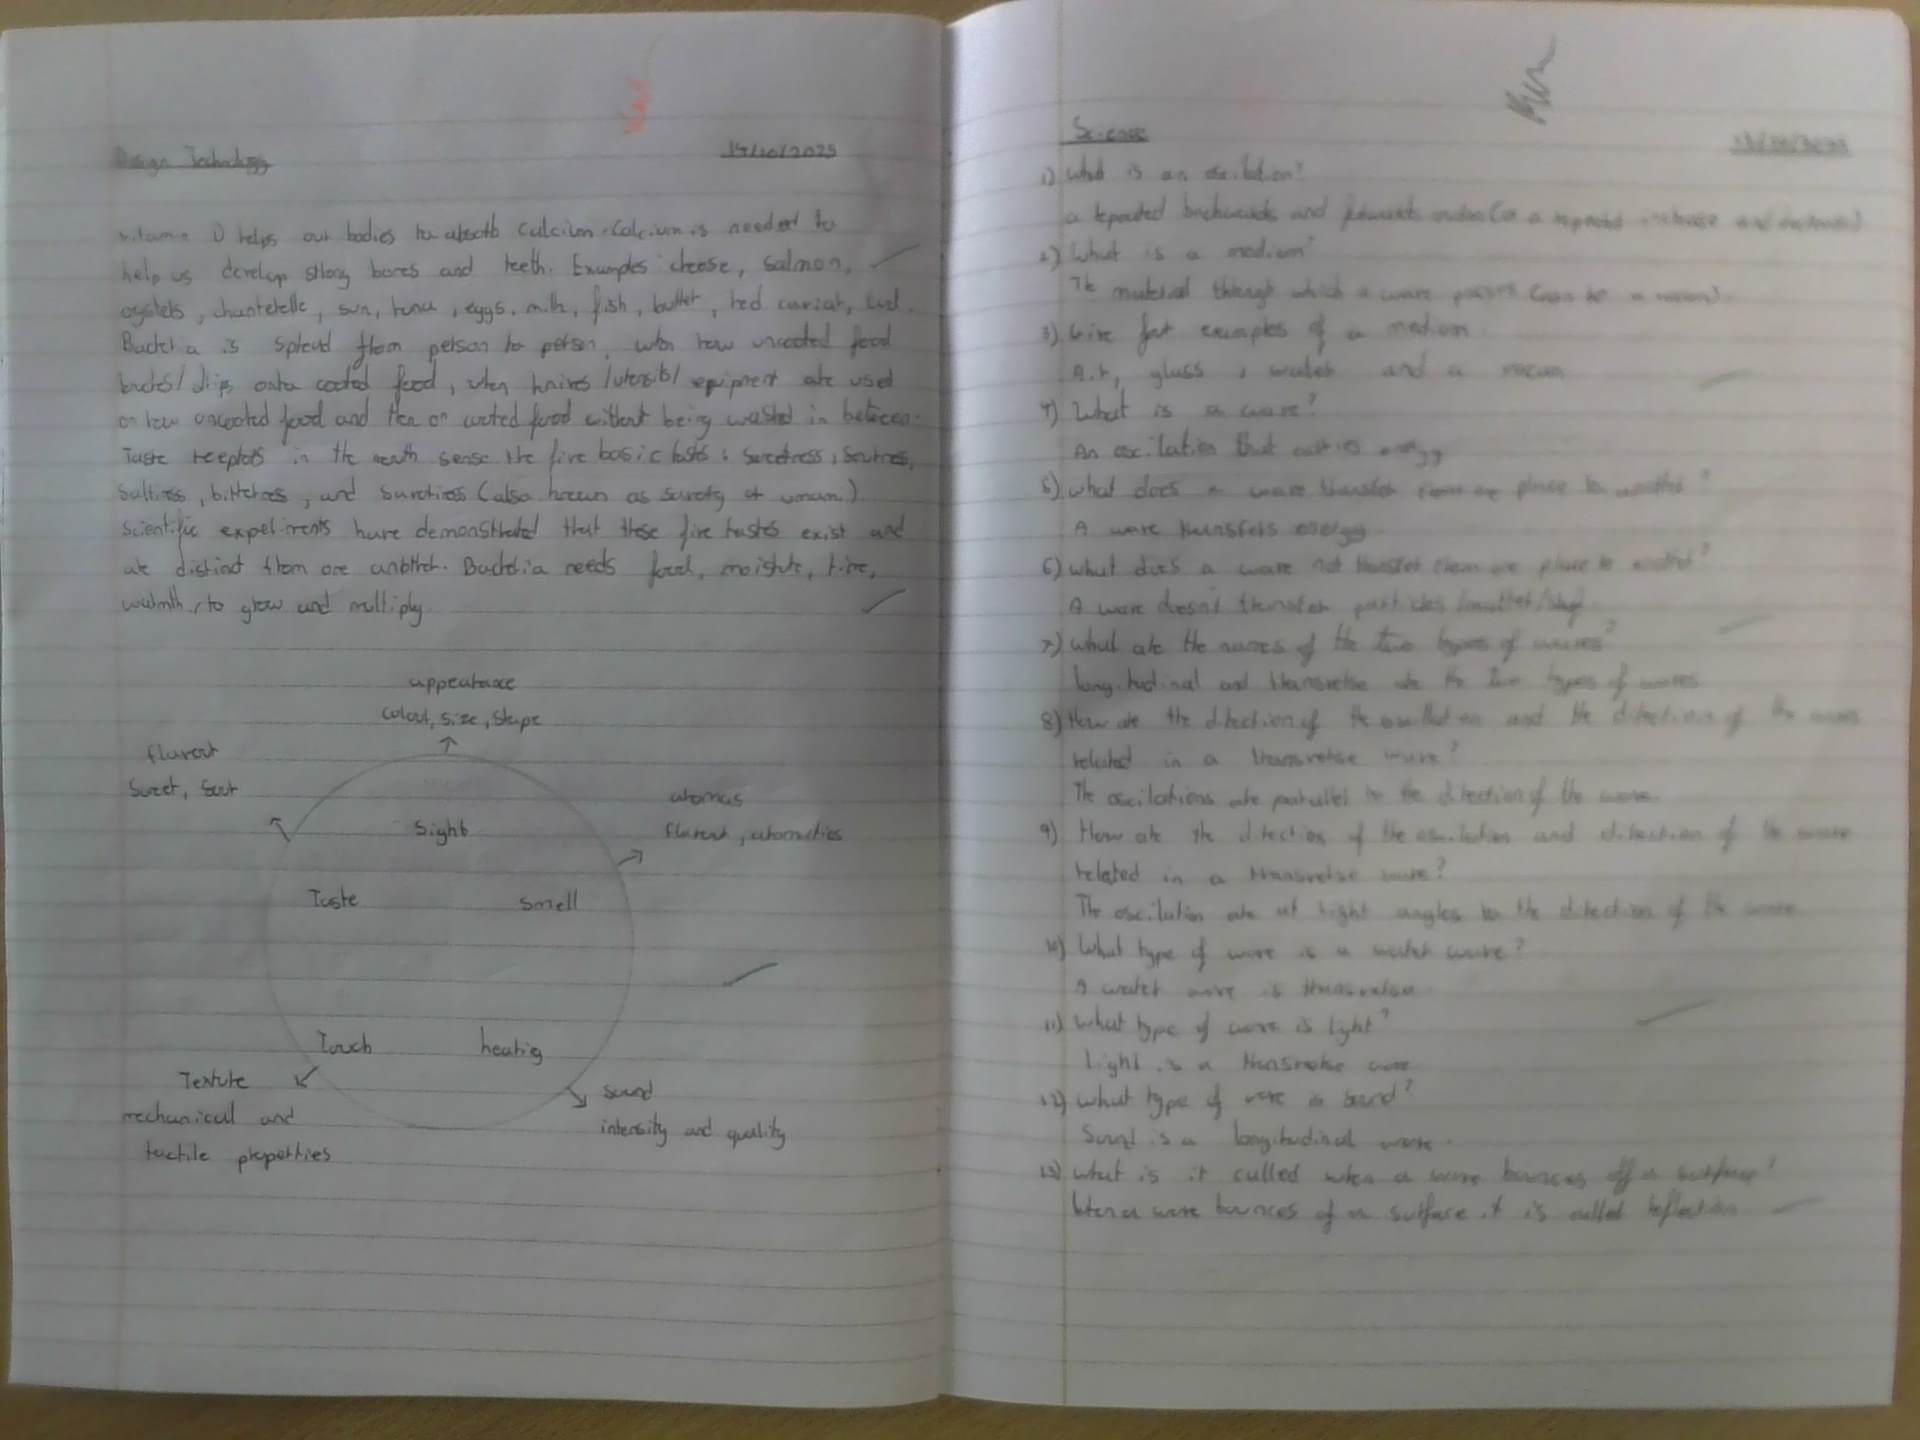 Design Technology
14/10/2025
vitamin D helps our bodies to absorb calcium. Calcium is needed to
help us develop strong bones and teeth. Examples cheese, salmon,
oysters, chanterelle, sun, tuna, eggs, milk, fish, butter, red caviar, curd.
is spread from person to person, when raw uncooked food
drips onto cooked food, when knives / utensils / equipment are used
on raw uncooked food and then on cooked food without being washed in between.
Taste in the mouth sense the five basic tastes : sweetness, sourness,
saltiness, bitterness, and (also known as savory or umami)
Scientific experiments have demonstrated that these five tastes exist and
are distinct from one another. Bacteria needs food, moisture, time,
warmth, to grow and multiply
appearance
colour, size, shape
flavour
Sweet, sour
Sight
aromas
flavour,
Taste
Smell
Touch
hearing
Texture
mechanical and
tactile properties
sound
intensity and quality
Science
1) What is an oscilation?
a repeated backwards and forwards motion (or a repeated increase and decrease)
2) What is a medium?
The material through which a wave passes (can be a vacuum)
3) Give four examples of a medium
Air, glass, water and a
4) What is a wave?
An oscilation that carries energy
5) what does a wave transfer from one place to another?
A wave transfers energy
6) what does a wave not transfer from one place to another?
A wave doesn't transfer particles / matter /
7) What are the names of the two types of waves?
longitudinal and transverse are the two types of waves
8) How are the direction of the oscillation and the direction of the wave
related in a transverse wave?
The oscilations are parallel to the direction of the wave
9) How are the direction of the oscilation and direction of the wave
related in a transverse wave?
The oscilation are at right angles to the direction of the wave
10) What type of wave is a water wave?
A water wave is transverse
11) What type of wave is light?
Light is a transverse wave
12) What type of wave is sound?
Sound is a longitudinal wave.
13) what is it called when a wave bounces off a surface?
When a wave bounces of a surface it is called reflection